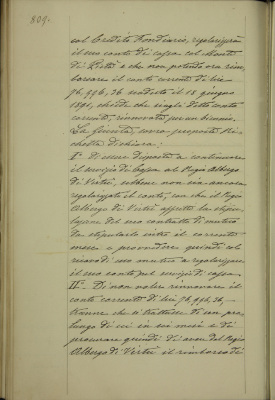 809.
col Credito Fondiario, regolarizzare
il suo conto di cassa col Monte
di Pietà e che non potendo ora rim-
borsare il conto corrente di lire
76,996,36 scaduto il 18 giugno
1891, chiede che venga detto conto
corrente, rinnovato per un biennio.
La Giunta sovra proposta
dichiara:
I° Di essere disposta a continuare
il servizio di Cassa al Regio Albergo
di Virtù, sebbene non sia ancora
regolarizzato il conto, con che il Regio
Albergo di Virtù affretti la stipu-
lazione del suo contratto di mutuo
da stipularsi entro il corrente
mese e provvedere quindi col
ricavo di suo mutuo a regolarizzare
il suo conto pel servizio di cassa.
II° Di non voler rinnovare il
conto corrente di lire 76,996,36,
tranne che si trattasse di un pro-
lungo di sei in sei mesi e di
procurare quindi di aver dal Regio
Albergo di Virtù il rimborso di